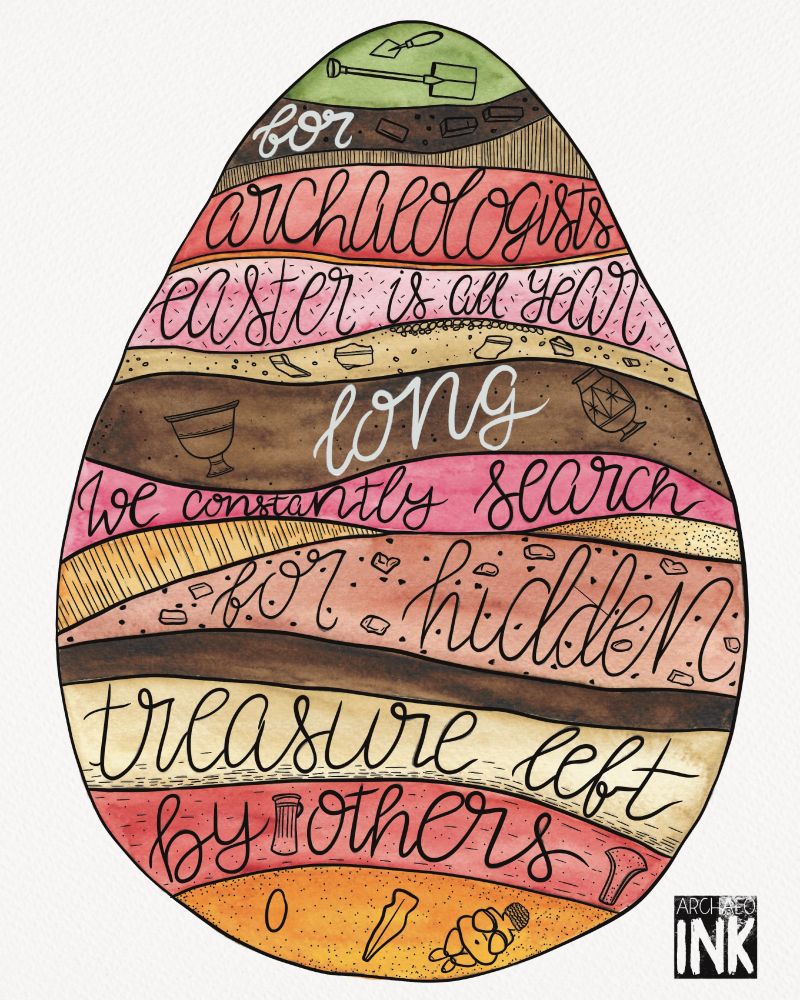 for
archaeologists
easter is all year
long
we constantly search
for hidden
treasure left
by others
ARCHAEO
INK